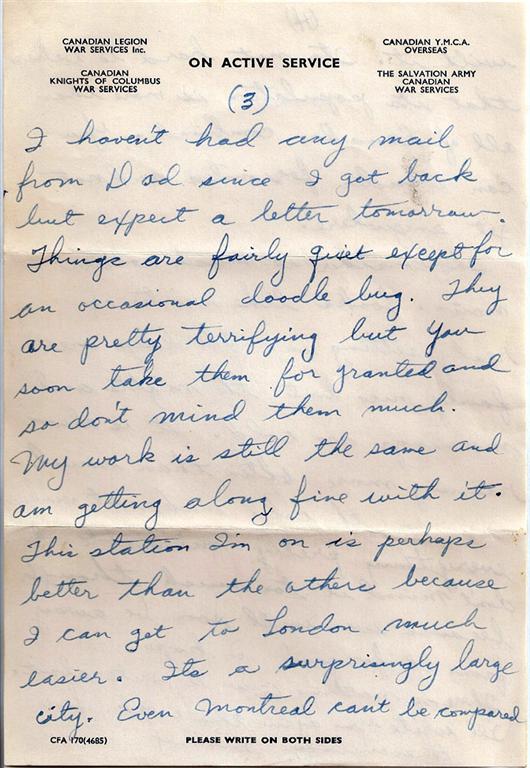 CANADIAN LEGION
WAR SERVICES Inc.
CANADIAN
KNIGHTS OF COLUMBUS
WAR SERVICES
ON ACTIVE SERVICE
CANADIAN Y.M.C.A.
OVERSEAS
THE SALVATION ARMY
CANADIAN
WAR SERVICES
(3)
I haven't had any mail
from Dad since I got back
but expect a letter tomorrow.
Things are fairly quiet except for
an occasional doodle bug. They
are pretty terrifying but you
soon take them for granted and
so don't mind them much.
My work is still the same and
am getting along fine with it.
This station I'm on is perhaps
better than the others because
I can get to London much
easier. Its a surprisingly large
city. Even Montreal can't be compared
CFA 170(4685)
PLEASE WRITE ON BOTH SIDES